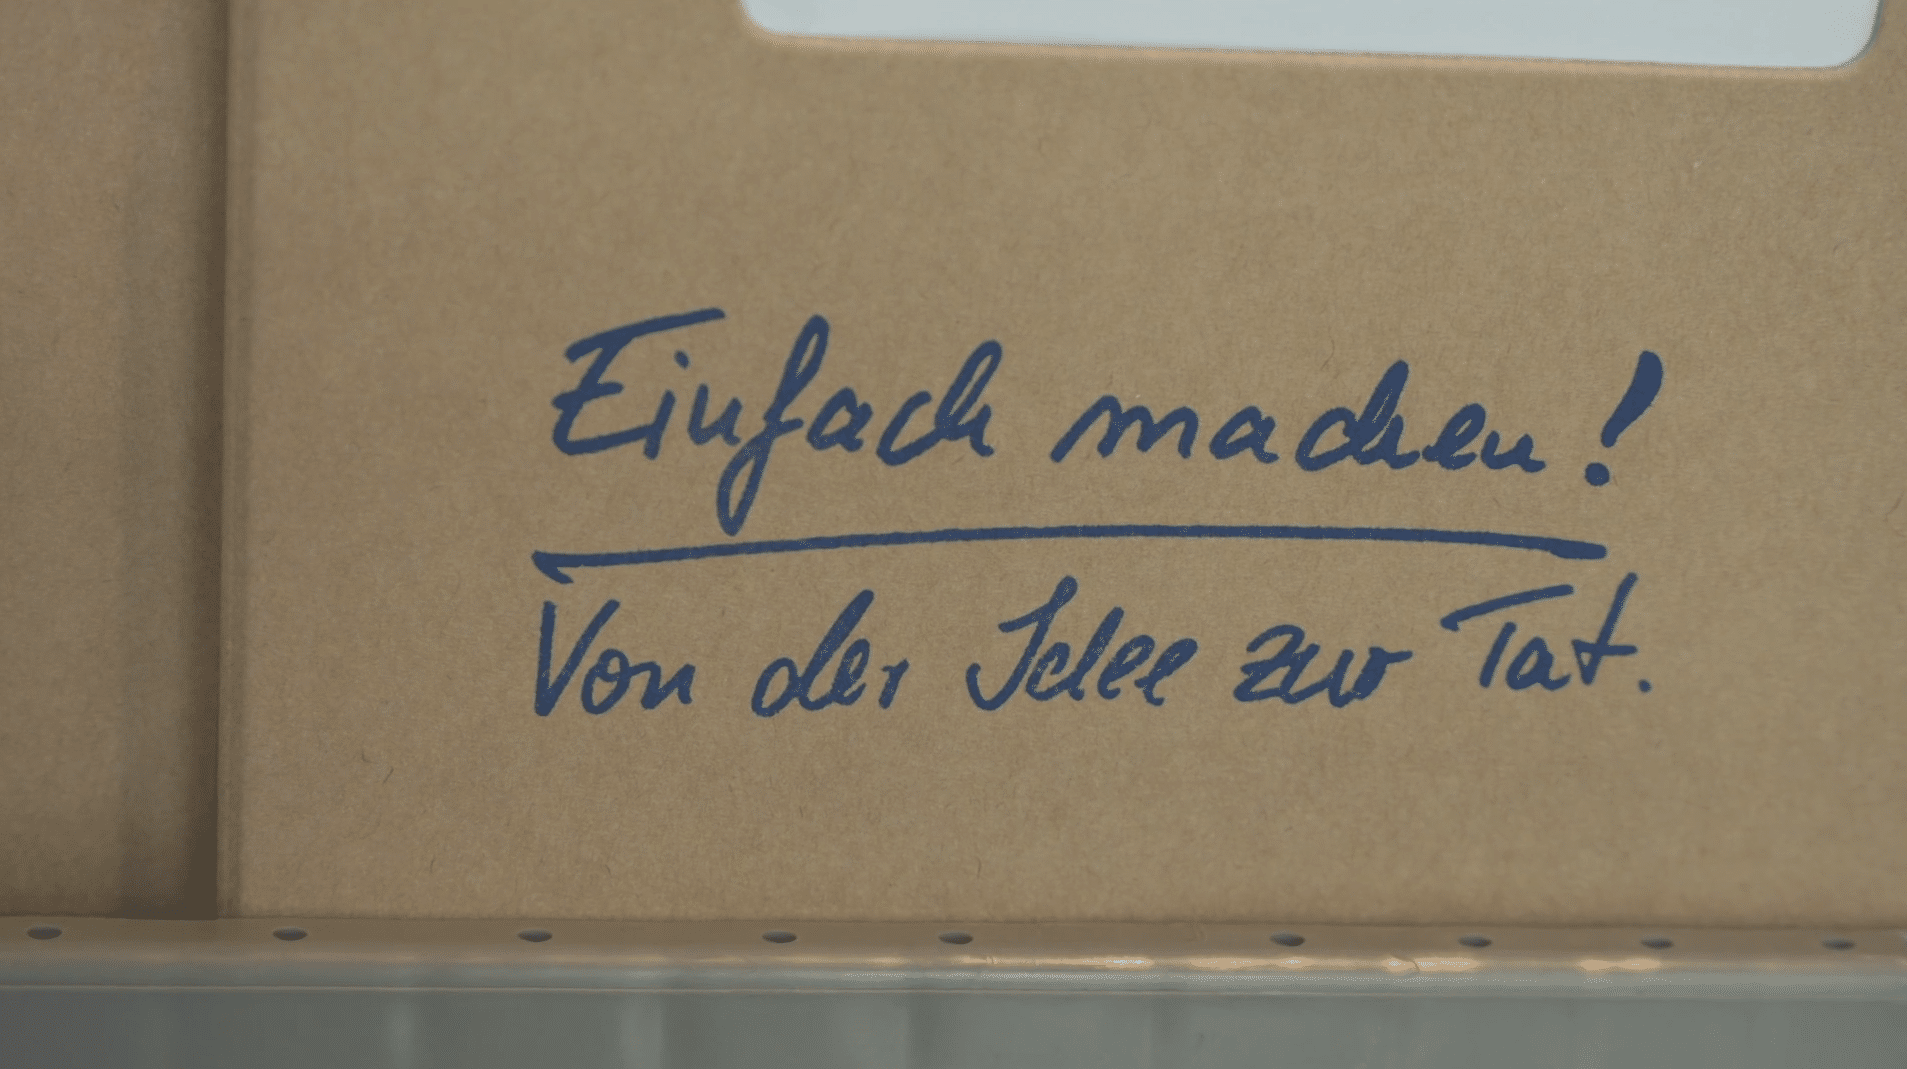 Einfach machen!
Von der Idee zur Tat.